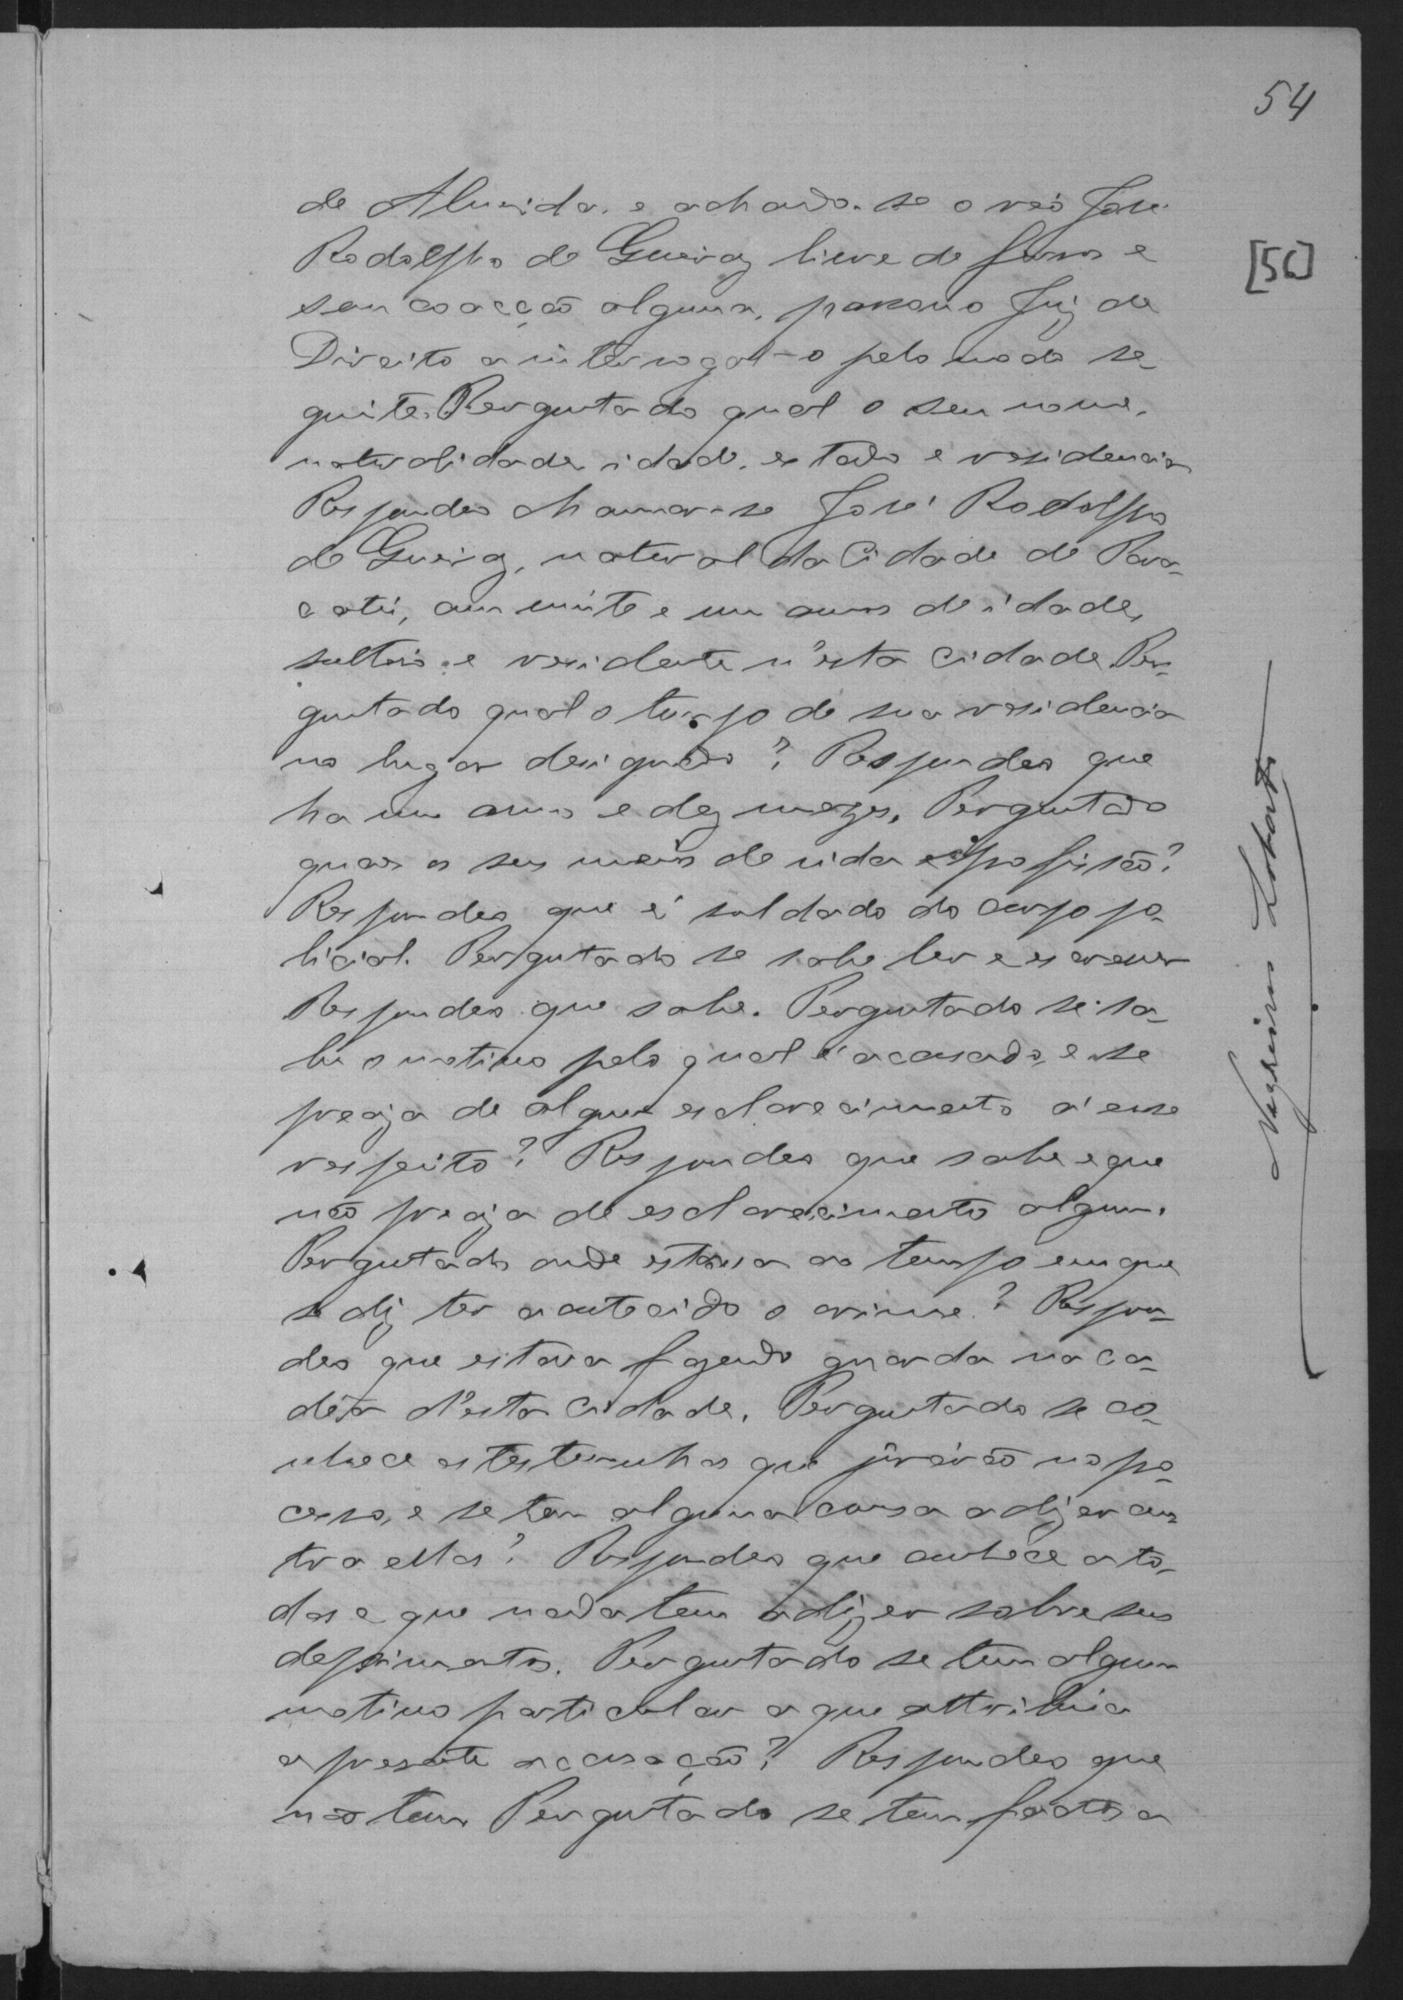 54
[56]
de Almeida. e achando-se o reó José
Rodolpho de Queiroz livre de ferros e
sem coacção alguma, passou o Juiz de
Direito a interrogal-o pelo modo se-
guinte. Perguntado qual o seu nome,
naturalidade, idade, estado e residencia
Respondeo chamar-se José Rodolpho
de Queiroz, natural da Cidade de Para-
catú, com vinte e um annos de idade,
solteiro e residente n'esta cidade. Per-
guntado qual o tempo de sua residencia
no lugar designado? Respondeo que
ha um anno e dez mezes. Perguntado
quaes os seus meios de vida e profissão?
Respondeo que é soldado do corpo po-
licial. Perguntado se sabe ler e escrever
Respondeo que sabe. Perguntado se sa-
be o motivo pelo qual é accusado, e se
preciza de algum esclarecimento á esse
respeito? Respondeo que sabe e que
não preciza de esclarecimento algum.
Perguntado onde estava ao tempo em que
se diz ter acontecido o crime? Respon-
deo que estava fazendo guarda na ca-
dêa d'esta cidade. Perguntado se co-
nhece as testemunhas que jurárão no pro-
cesso, e se tem alguma cousa a dizer con-
tra ellas? Respondeo que conhece a to-
das e que nada tem a dizer sobre seus
depoimentos. Perguntado se tem algum
motivo particular a que attribúa
a presente accusação? Respondeo que
não tem Perguntado se tem factos a
Lobato